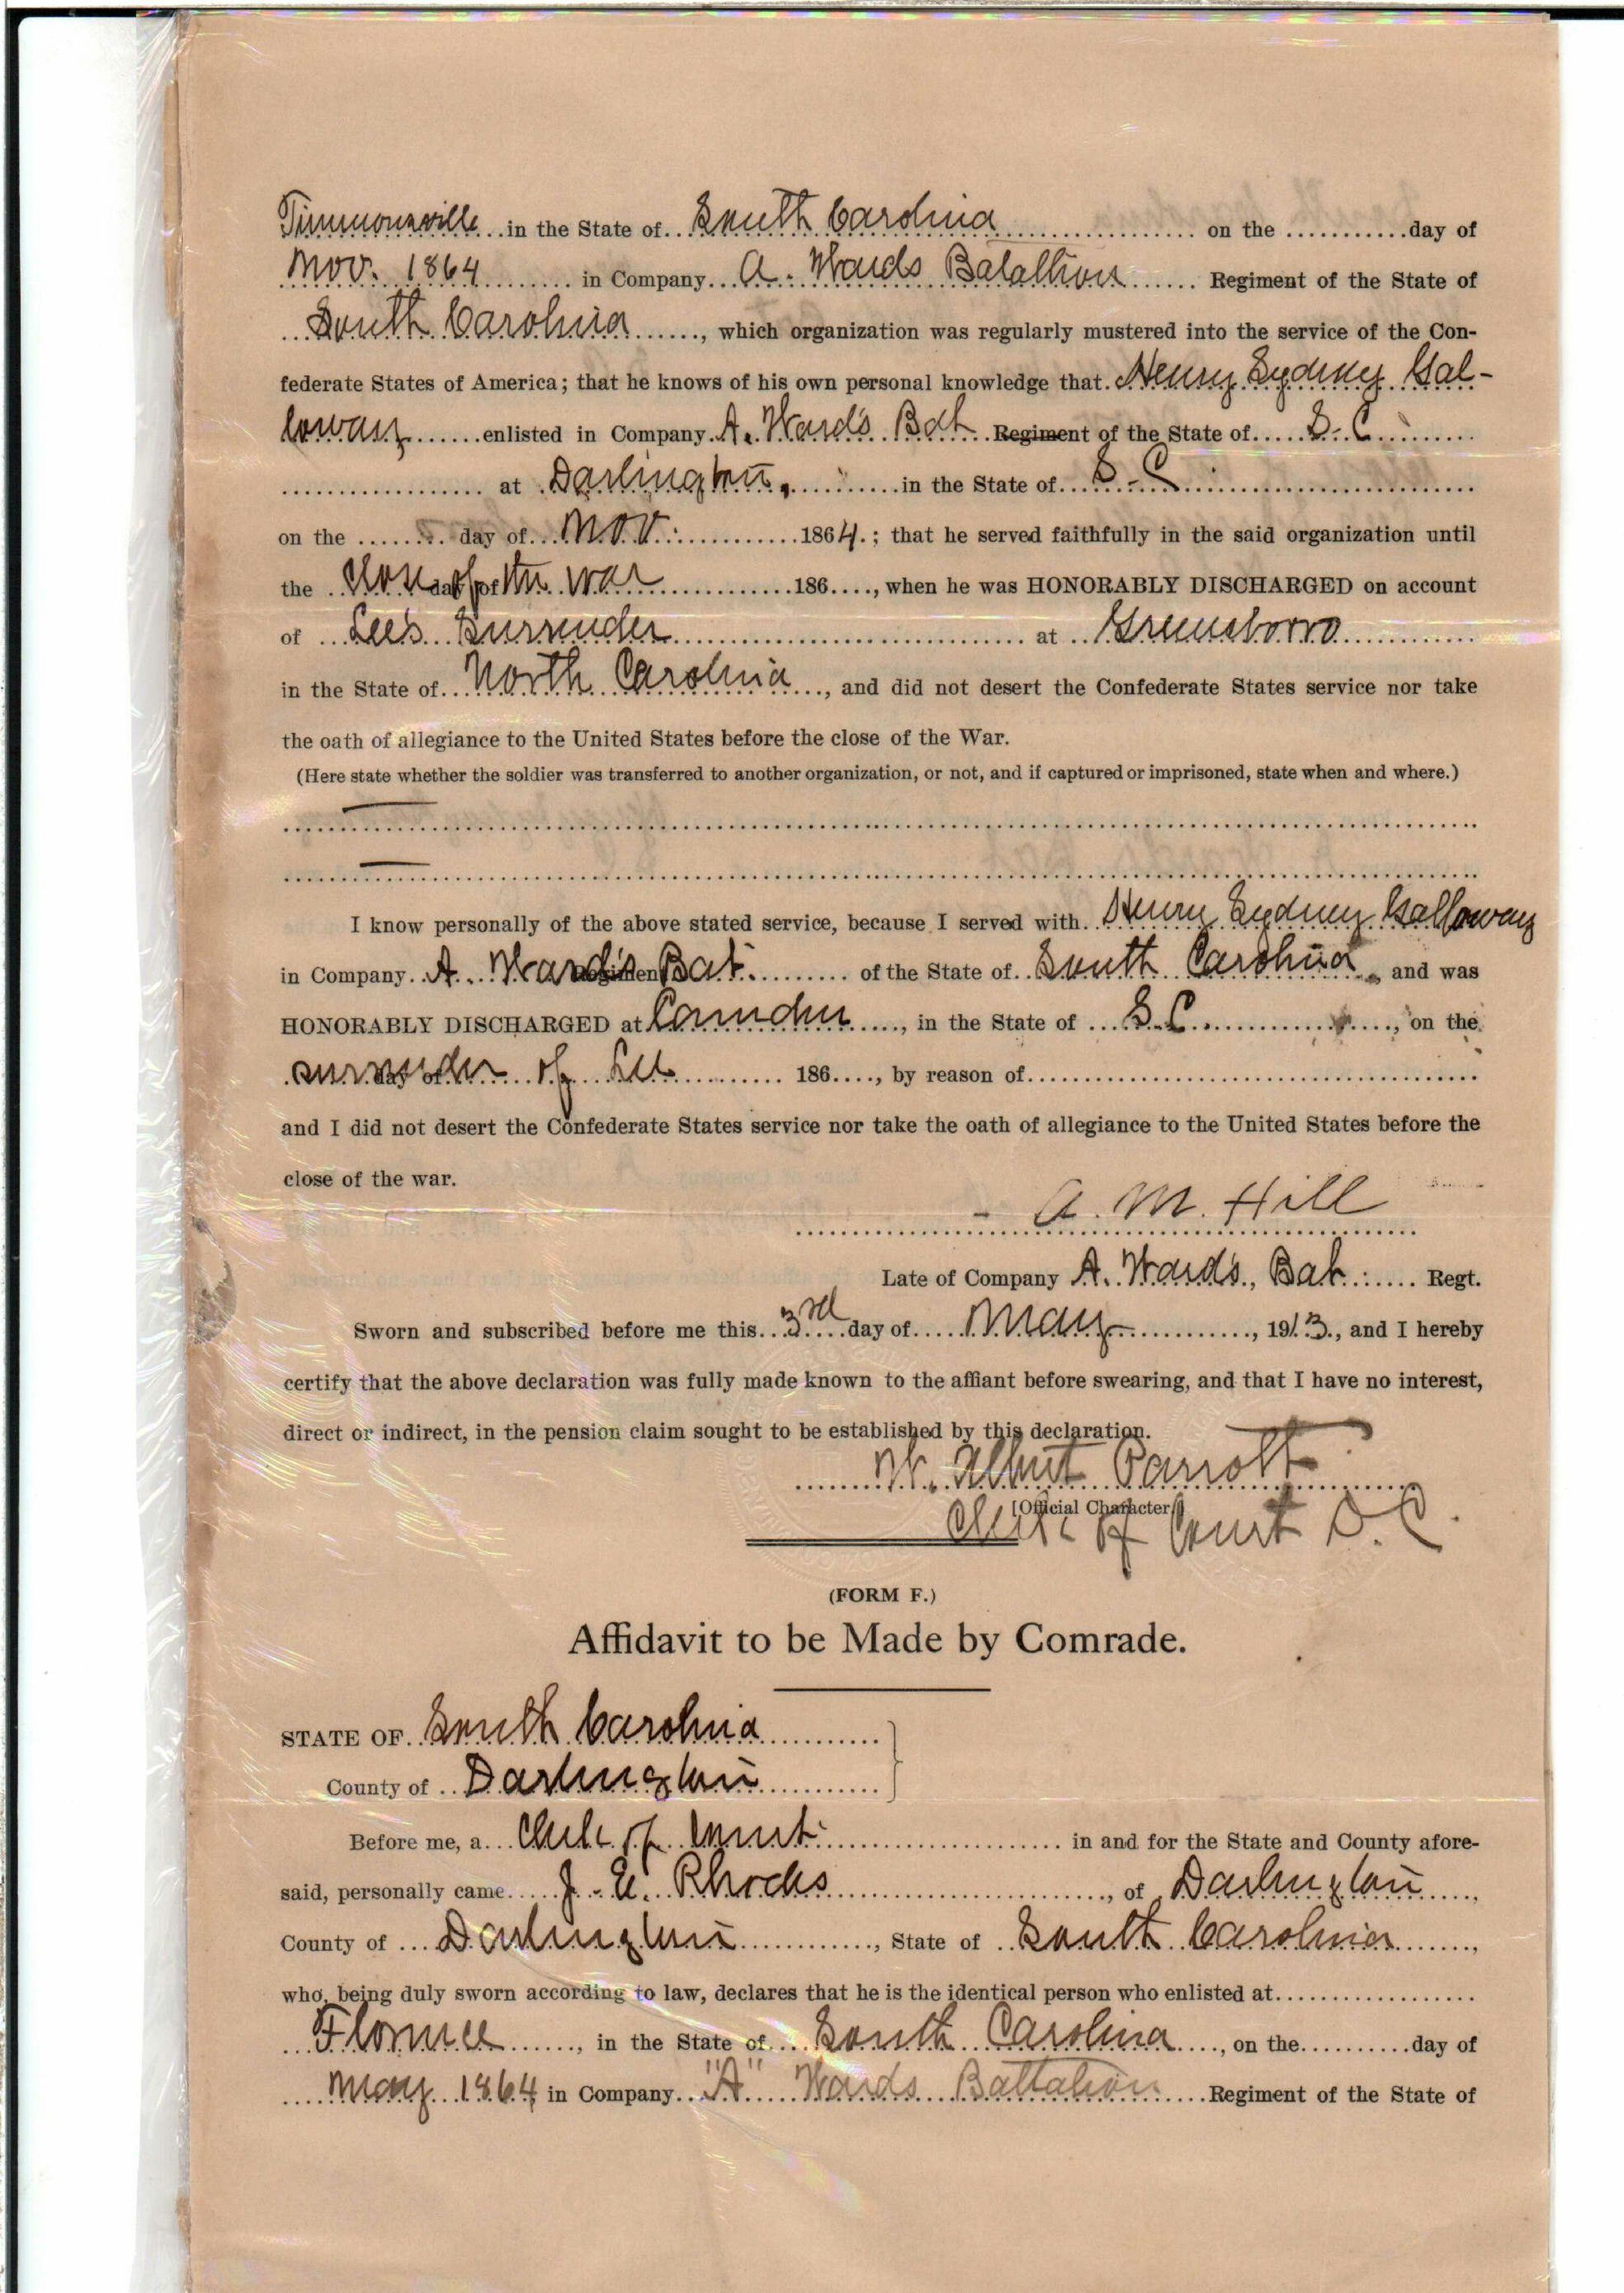 Timmonsville in the State of South Carolina on the day of
Nov. 1864 in Company A. Wards Batallion Regiment of the State of
South Carolina, which organization was regularly mustered into the service of the Con-
federate States of America; that he knows of his own personal knowledge that Henry Sydney Gal-
loway enlisted in Company A. Ward's Bat Regiment of the State of S. C.
at Darlington, in the State of S. C.
on the day of Nov. 1864.; that he served faithfully in the said organization until
the close day of of the war 186...., when he was HONORABLY DISCHARGED on account
of Lee's Surrender at Greensboro
in the State of North Carolina, and did not desert the Confederate States service nor take
the oath of allegiance to the United States before the close of the War.
(Here state whether the soldier was transferred to another organization, or not, and if captured or imprisoned, state when and where.)
I know personally of the above stated service, because I served with Henry Sydney Galloway
in Company A. Ward's Regiment Bat. of the State of South Carolina, and was
HONORABLY DISCHARGED at Camden, in the State of S. C., on the
surrender day of of Lee 186...., by reason of
and I did not desert the Confederate States service nor take the oath of allegiance to the United States before the
close of the war.
A. M. Hill
Late of Company A. Ward's, Bat. Regt.
Sworn and subscribed before me this 3rd day of May, 1913., and I hereby
certify that the above declaration was fully made known to the affiant before swearing, and that I have no interest,
direct or indirect, in the pension claim sought to be established by this declaration.
W. Albert Parrott
[Official Character]
Clerk of Court D. C.
(FORM F.)
Affidavit to be Made by Comrade.
STATE OF South Carolina
County of Darlington
Before me, a Clerk of Court in and for the State and County afore-
said, personally came J. E. Rhodes, of Darlington,
County of Darlington, State of South Carolina,
who, being duly sworn according to law, declares that he is the identical person who enlisted at
Florence, in the State of South Carolina, on the day of
May 1864, in Company "A" Wards Battalion Regiment of the State of